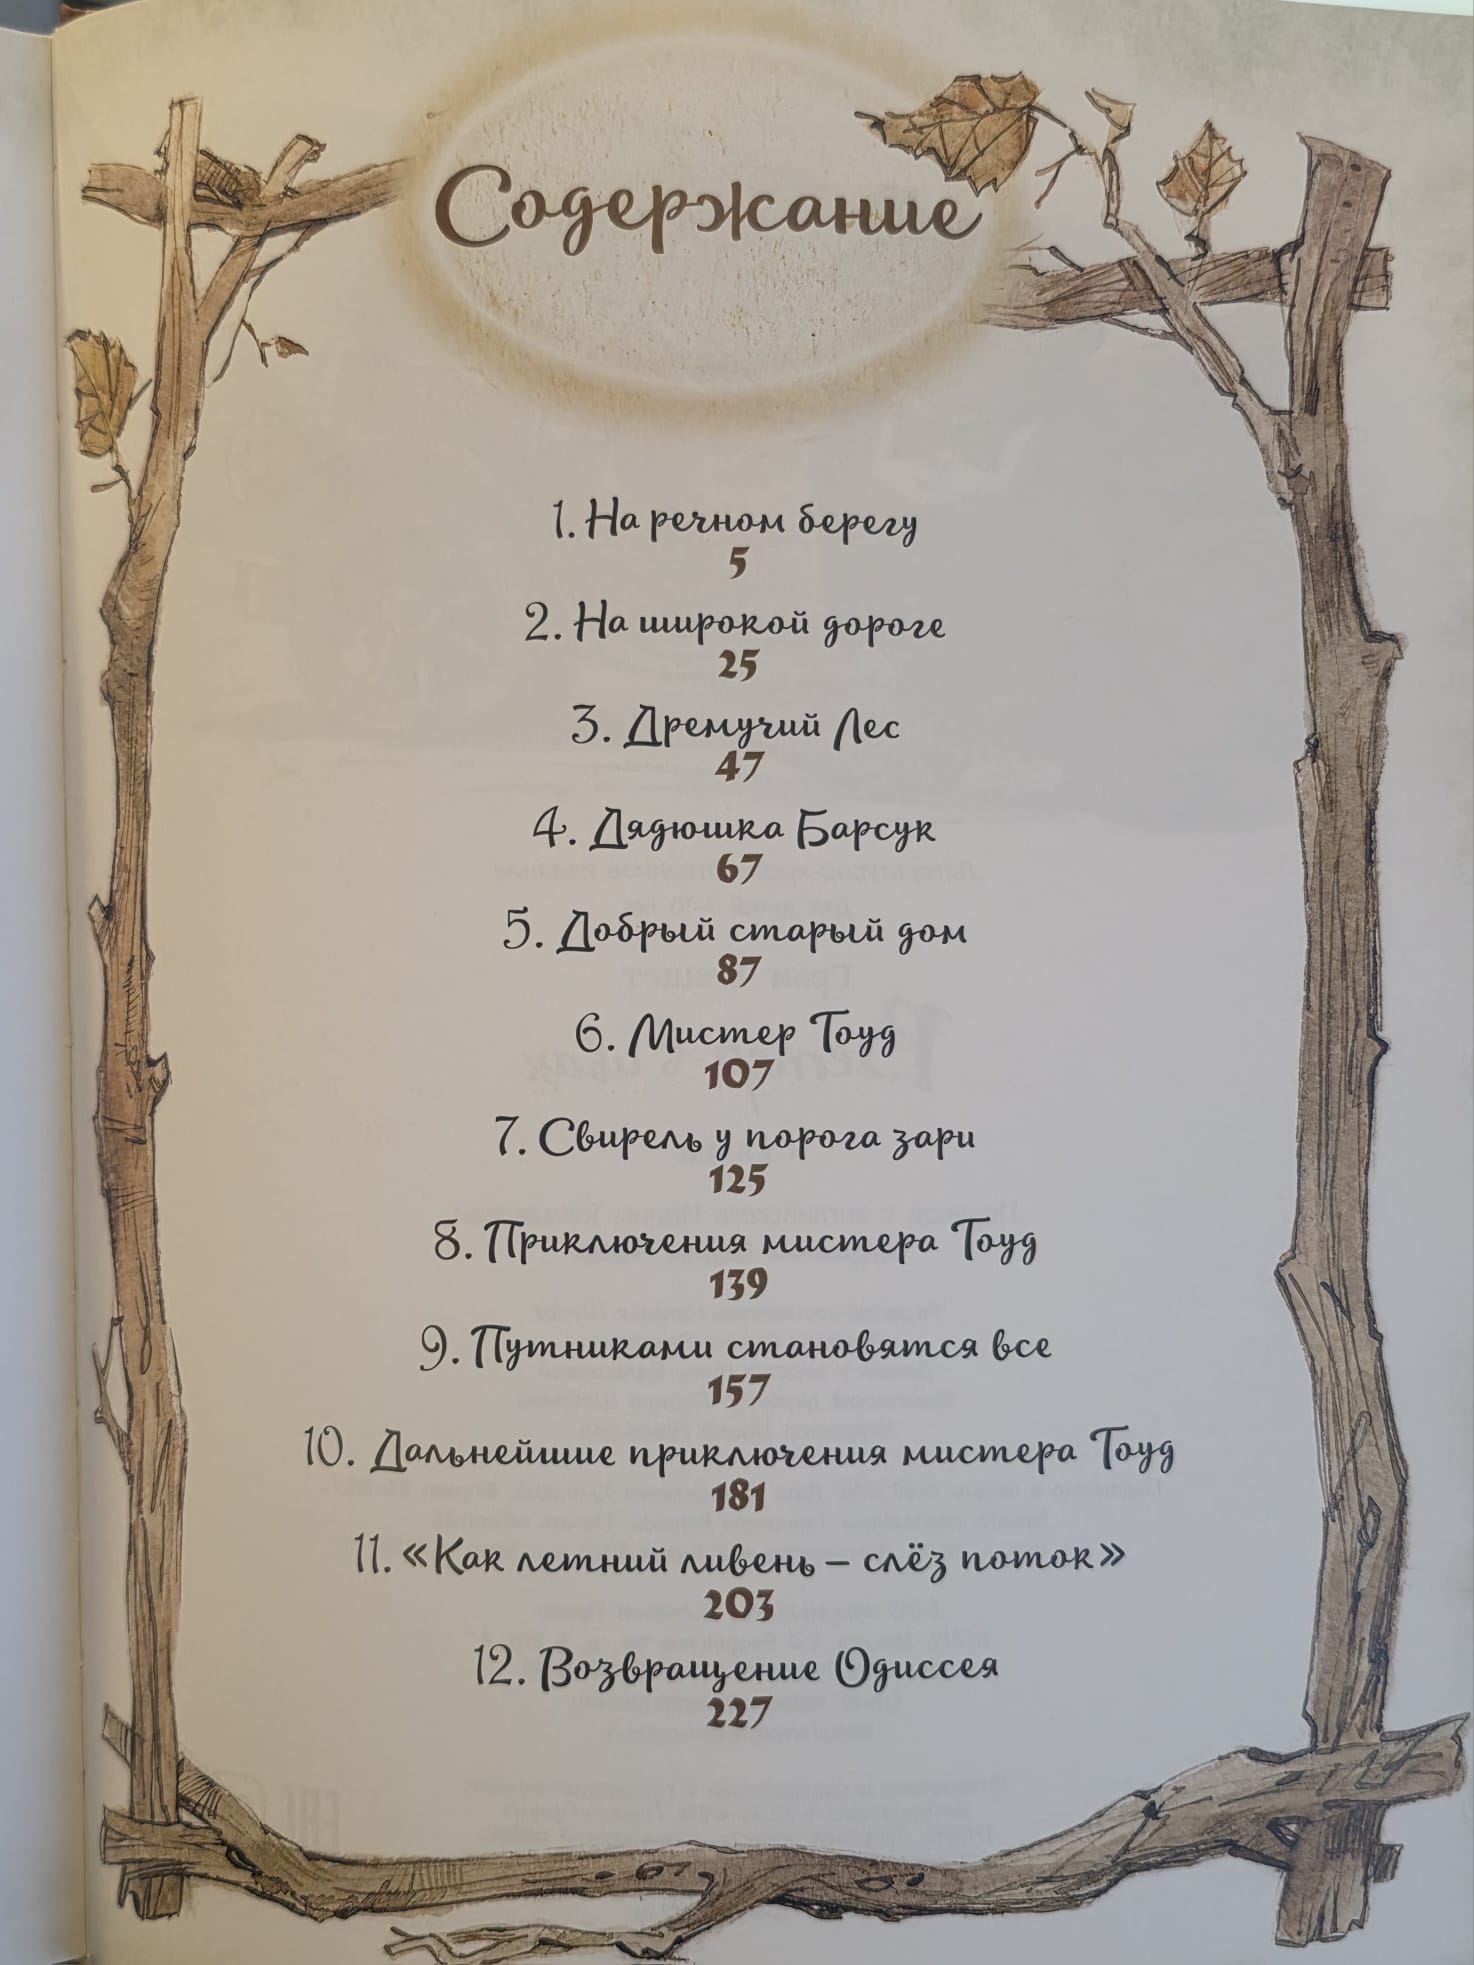 Содержание
1. На речном берегу
5
2. На широкой дороге
25
3. Дремучий Лес
47
4. Дядюшка Барсук
67
5. Добрый старый дом
87
6. Мистер Тоуд
107
7. Свирель у порога зари
125
8. Приключения мистера Тоуд
139
9. Путниками становятся все
157
10. Дальнейшие приключения мистера Тоуд
181
11. «Как летний ливень – слёз поток»
203
12. Возвращение Одиссея
227